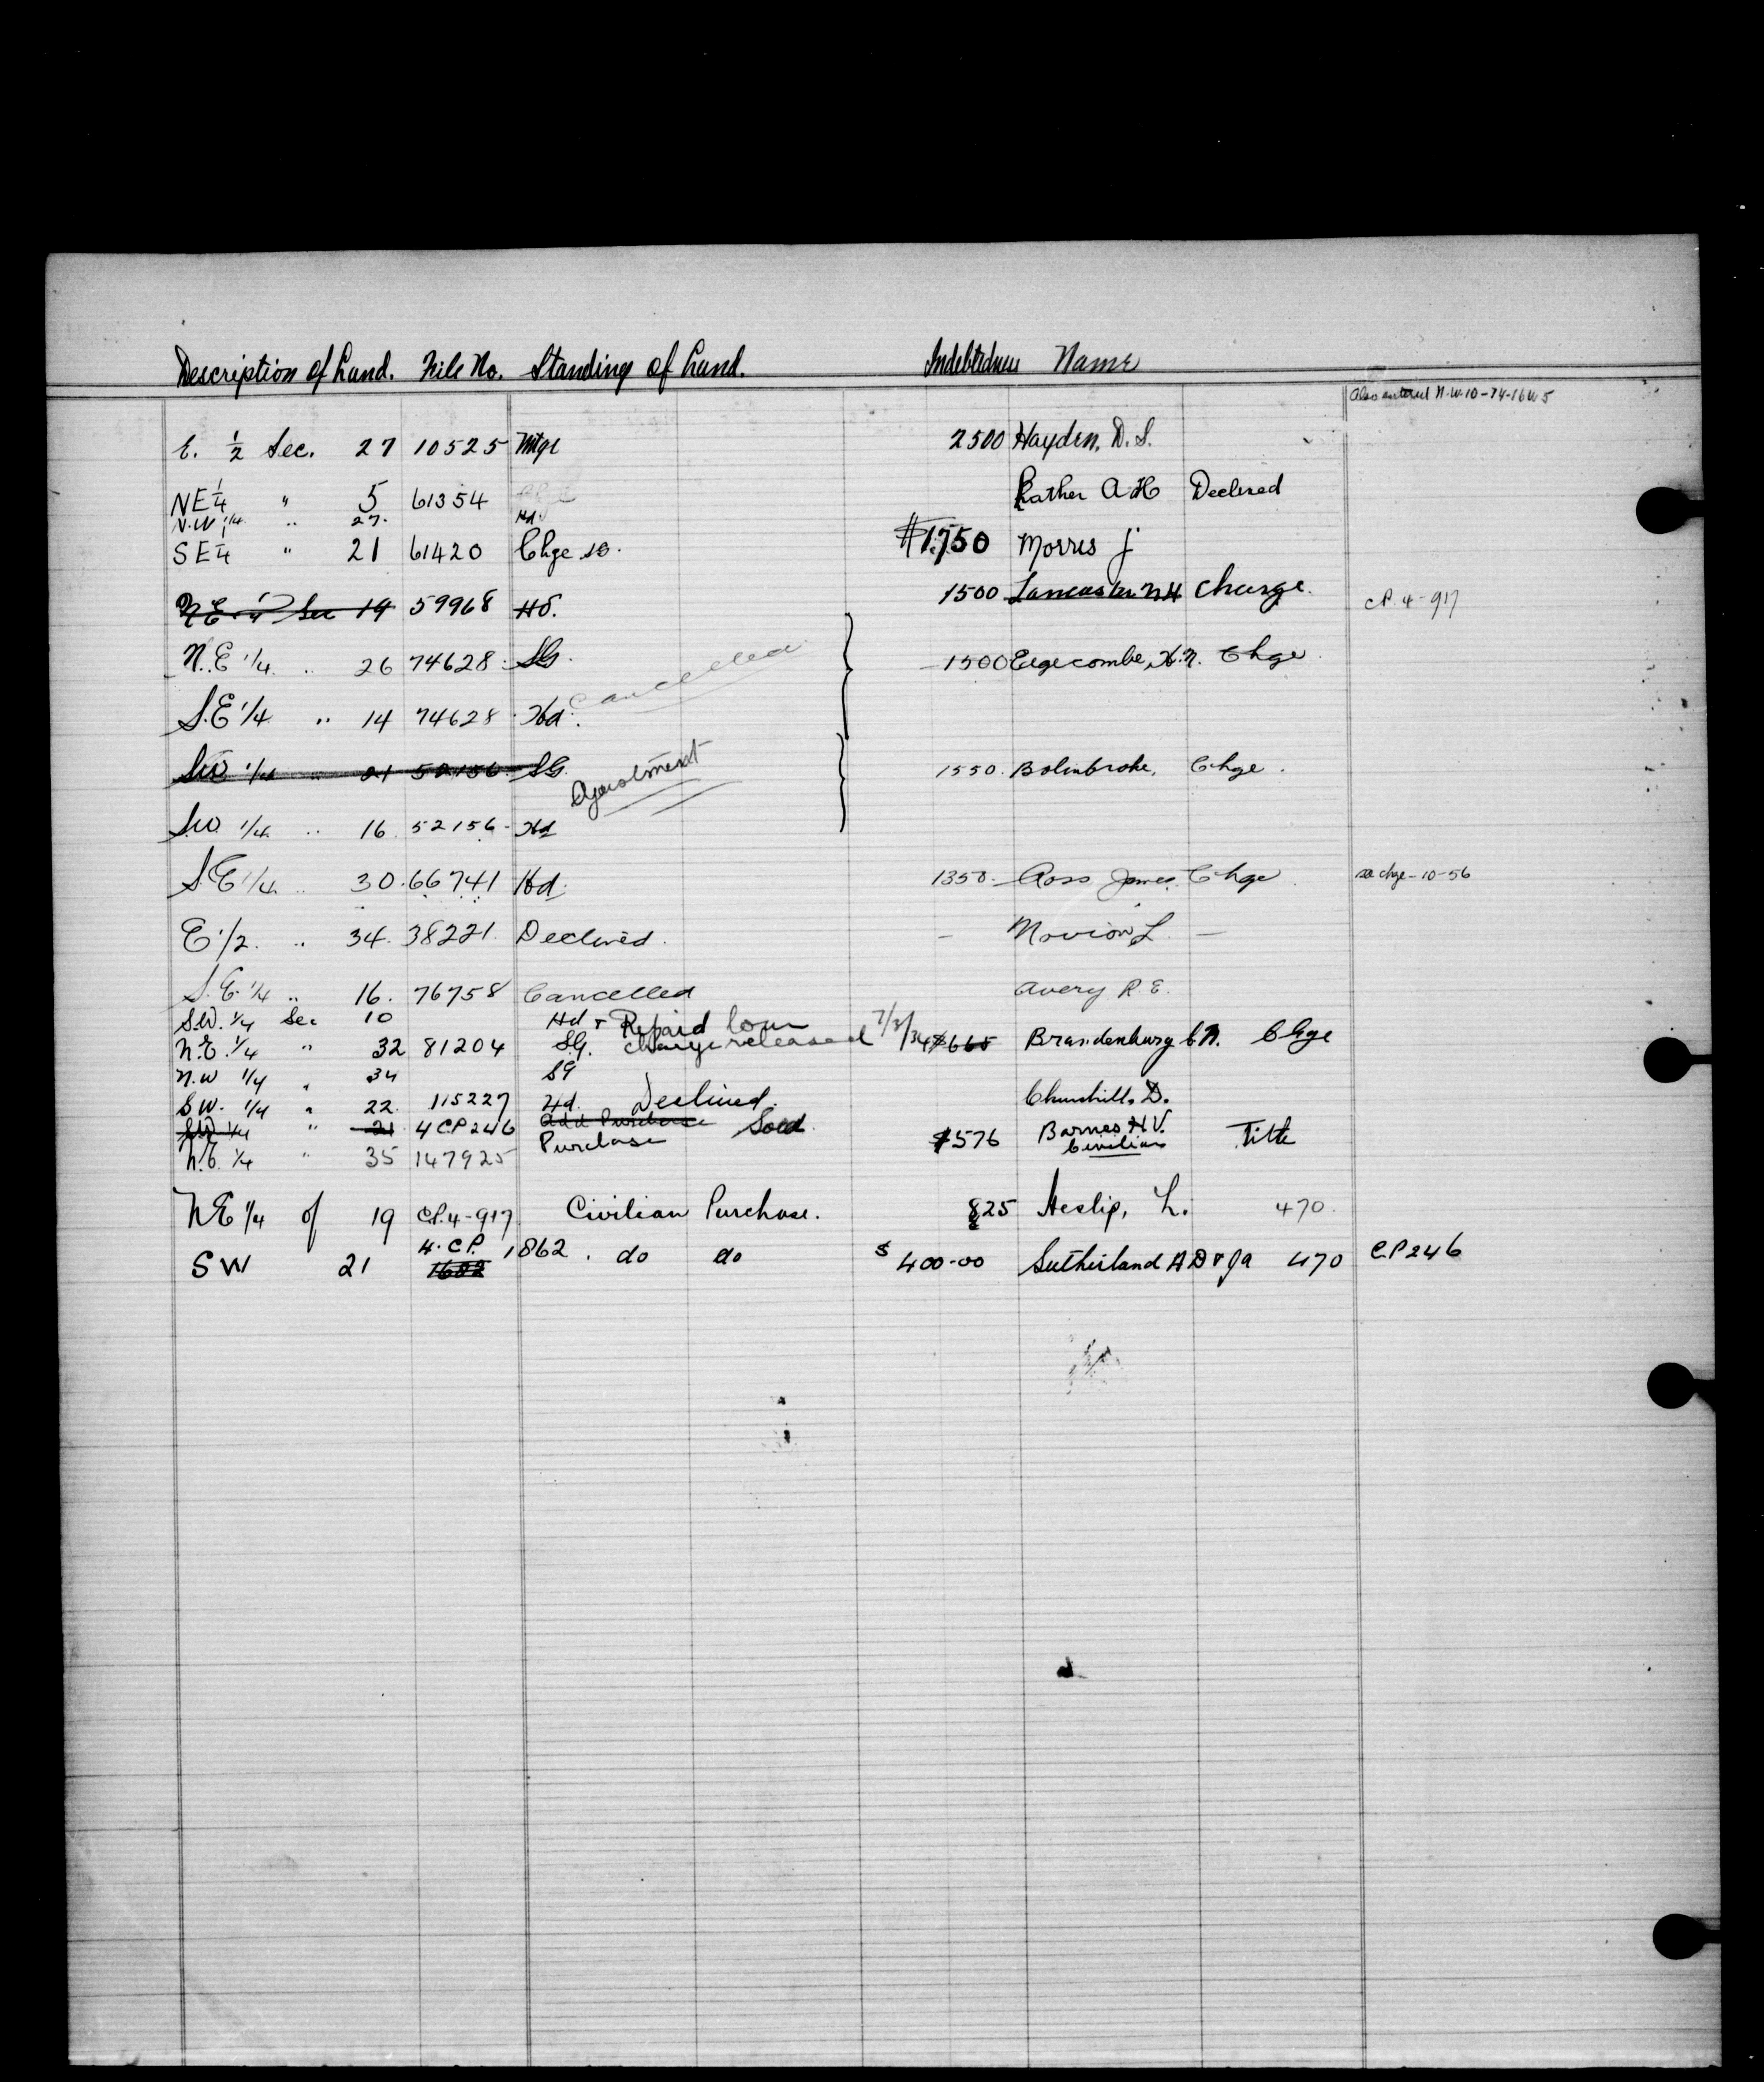 Description of Land. File No. Standing of Land. Indebtedness Name
Also entered N.W.10-74-16W5
E. 1/2 Sec. 27 10525 Mtge 2500 Hayden, D. S.
NE 1/4 " 5 61354 Rather A H Declined
N.W 1/4 " 27. Hd.
SE 1/4 " 21 61420 Chge so. $1,750 Morris J
N E 1/4 Sec 19 59968 Hd. 1500 Lancaster N H Charge. CP. 4-917
N.E 1/4 " 26 74628 SG. Cancelled 1500 Edgecombe, H.N. Chge.
S.E 1/4 " 14 74628 Hd.
SW 1/4 " 21 52156 SG. Ajustment 1550. Bolinbroke, Chge.
SW 1/4 " 16. 52156- Hd
S.E 1/4 " 30. 66741 Hd. 1350.- Ross James Chge. so chge-10-56
E 1/2. " 34. 38221. Declined. - L. -
S.E. 1/4 " 16. 76758 Cancelled Avery R.E.
S.W. 1/4 Sec 10 Hd + Repaid loan
N.E. 1/4 " 32 81204 S.G. charge released 7/3/34 $665 Brandenburg C.N. Chge
N.W 1/4 " 34 SG
S W. 1/4 " 22. 115227 Hd. Declined. Churchill, D.
SW 1/4 " 21 4 CP 246 Add Purchase Sold $576 Barnes H V. Civilian Title
N.E. 1/4 " 35 147925 Purchase
NE 1/4 of 19 C.P. 4-917 Civilian Purchase. 825 Heslip, L. 470.
SW 21 4. CP. 1682 1862. do do $400-00 Sutherland A D & Ja 470 C.P 246